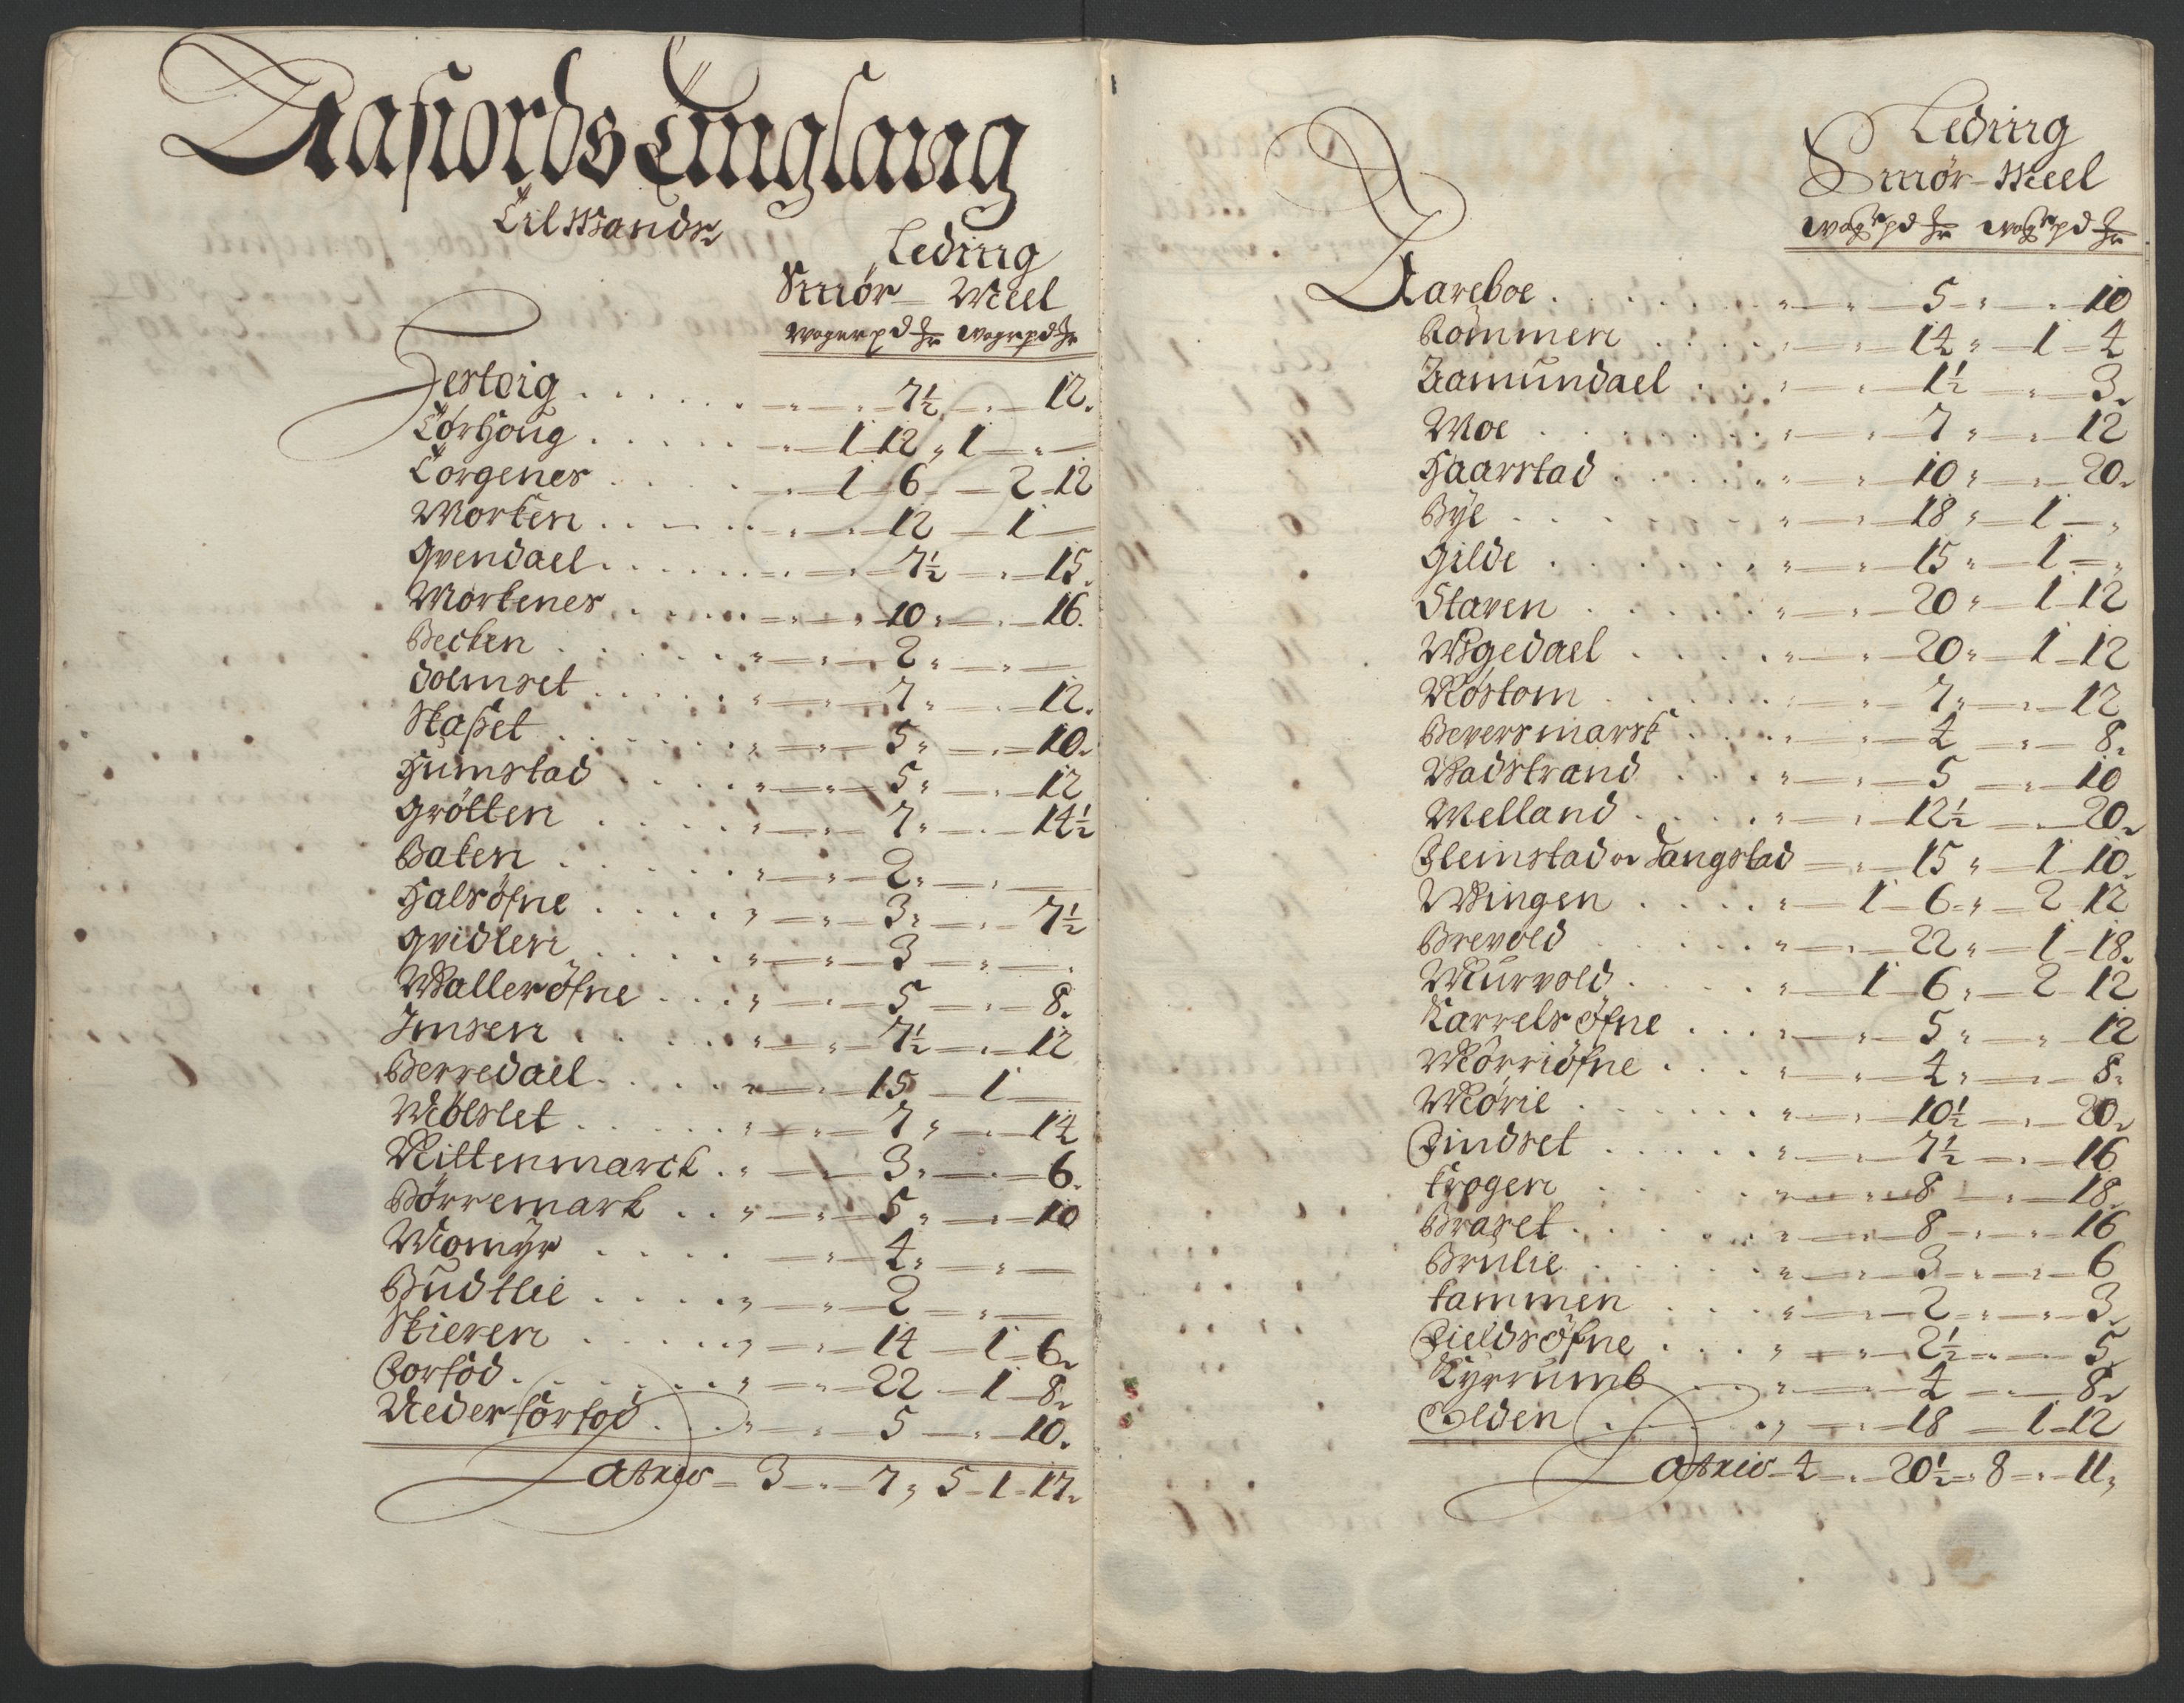 Aafiords Tinglaug
Til Mands
Leding
Smör – Meel
Woger pd ℔ Wogr pd ℔
Festvig . . . . . . „ „ 7½ „ 12.
Törhoug . . . . „ 1 12 „ 1 „ –
Torgenes . . . . „ 1 6 – 2 12
Morken . . . . „ „ 12 – 1 –
Qvendael . . . . . „ „ 7½ „ 15.
Morkenes . . . . „ „ 10 „ „ 16.
Becken . . . . „ „ 2 „ „ –
Dolmset . . . . . „ „ 7 „ „ 12.
Staset . . . . . „ „ 5 „ „ 10.
Humstad . . . . „ „ 5 „ „ 12
Grötten . . . . „ „ 7 „ „ 14½
Baken . . . . . „ „ 2 „ „ –
Halsöfne . . . . „ „ 3 „ „ 7½
Qvidlen . . . . „ „ 3 „ –
Walleröfne . . . „ „ 5 „ 8.
Imsen . . . . „ „ 7½ „ 12
Berredael . . . . „ „ 15 – 1 –
Mölslet . . . . . „ „ 7 „ „ 14
Rittenmarck . . „ „ 3 „ „ 6.
Börremark . . „ „ 5 „ „ 10
Momÿr . . . . „ „ 4 „ „ –
Budtlie . . . . „ „ 2 „ –
Skieren . . . . „ „ 14 – 1 – 6.
Forfod . . . . . „ „ 22 – 1 – 8.
Neder forfod . . . „ „ 5 „ 10.
Latrio – 3 „ 7 „ 5 – 1 – 17.
Leding
Smör – Meel
Wogr pd ℔ Wogr pd ℔
Aareboe . . . . . . „ „ 5 „ „ 10
Kommen . . . . „ „ 14 „ 1 – 4
Aamundael . . . „ „ 1½ „ 3.
Moe . . . . . . „ „ 7 „ „ 12
Haarstad . . . . . „ „ 10 „ „ 20.
Bÿe . . . . . „ „ 18 „ 1 – „
Gilde . . . . . . „ „ 15 „ 1 – „
Staven . . . . . „ „ 20 „ 1 12
Wigedael . . . . „ „ 20 „ 1 12
Rostom . . . . . „ „ 7 „ „ 12
Beversmark . . . . „ „ 4 „ 8.
Wadstrand . . . „ „ 5 „ 10
Melland . . . . „ „ 12½ „ 20.
Fleinstad oc Langstad „ 15 „ 1 10.
Wingen . . . . „ 1 6 „ 2 12
Brevold . . . . „ „ 22 „ 1 18.
Murvold . . . . „ 1 6 „ 2 12
Karrelsöfne . . . „ „ 5 „ „ 12
Mörriöfne . . . . „ „ 4 „ „ 8.
Mörie . . . . . „ „ 10½ „ 20.
Findset . . . . . „ „ 7½ „ 16
Krogen . . . . „ „ 8 „ 18.
Braset . . . . „ „ 8 „ „ 16
Brulie . . . . . „ „ 3 „ „ 6
Kammen . . . . „ „ 2 „ „ 3.
Fieldsöfne . . . . „ „ 2½ „ 5
Kÿrrumb . . . „ „ 4 „ 8.
Olden . . . . „ „ 18 – 1 – 12
Latrio – 4 „ 20½ „ 8 „ 11.